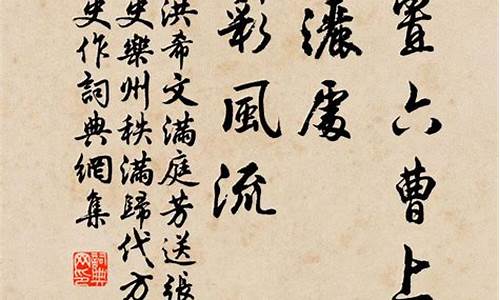 置六曹上
灑處
影風流
洪希文滿庭芳送張
史樂州秩滿歸代方
史作詞典網集